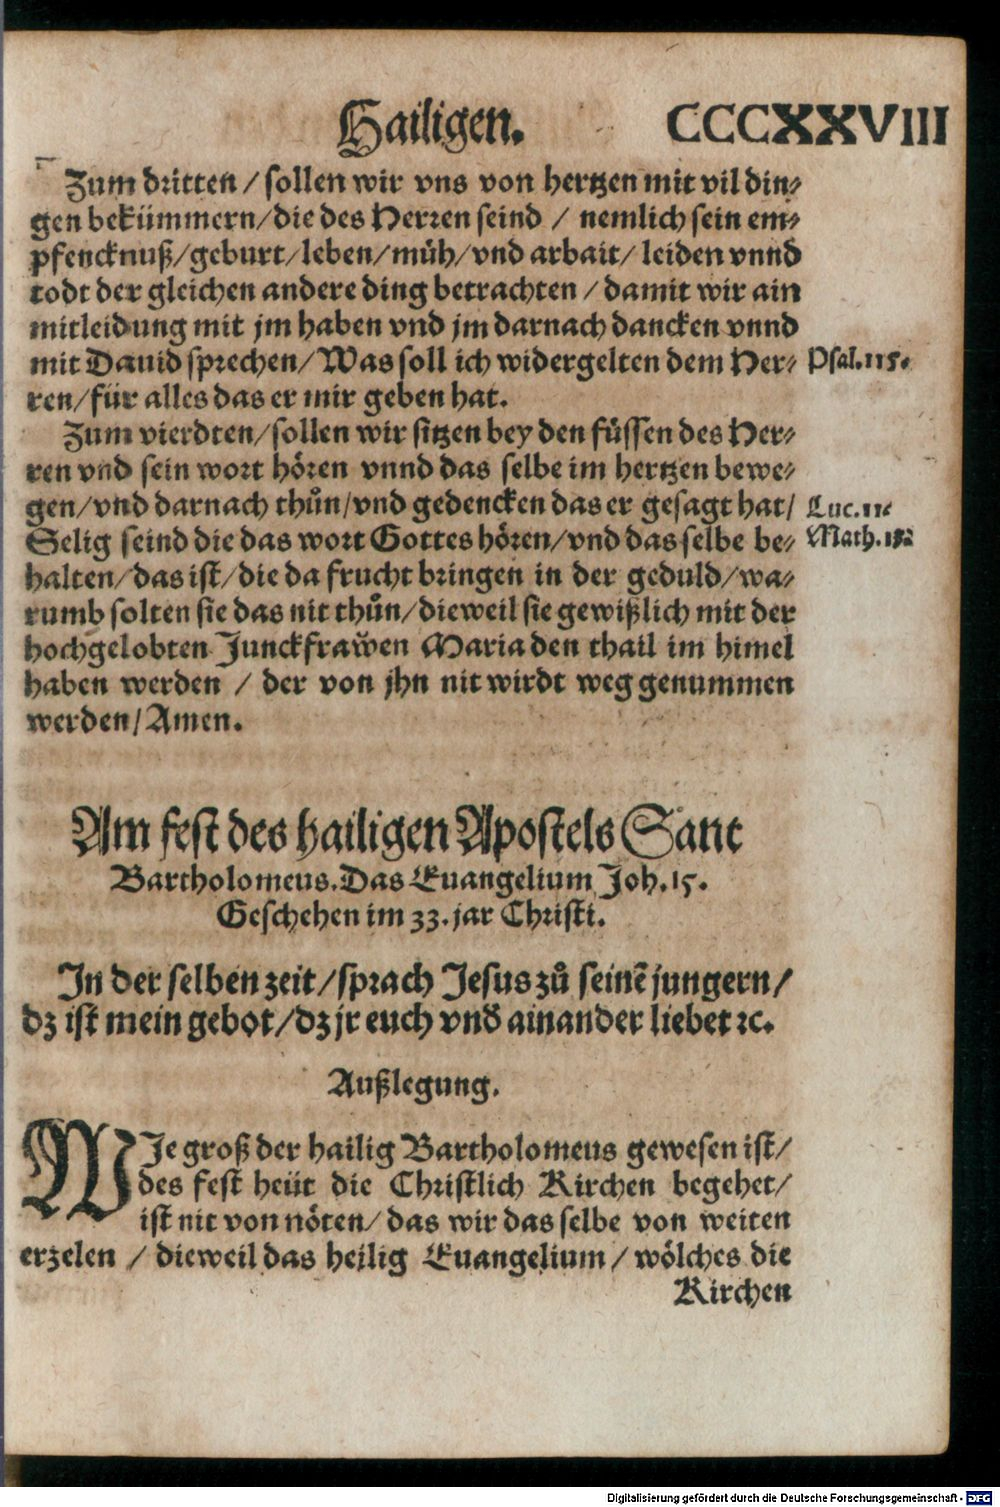 Hailigen. CCCXXVIII
Zum dritten / sollen wir vns von hertzen mit vil din⸗
gen bekümmern/die des Herren seind / nemlich sein em⸗
pfencknuß/geburt/leben/müh/vnd arbait/ leiden vnnd
todt der gleichen andere ding betrachten / damit wir ain
mitleidung mit jm haben vnd jm darnach dancken vnnd
mit Dauid sprechen/ Was soll ich widergelten dem Her⸗ Psal.115.
ren/für alles das er mir geben hat.
Zum vierdten/sollen wir sitzen bey den füssen des Her⸗
ren vnd sein wort hören vnnd das selbe im hertzen bewe⸗
gen/vnd darnach thůn/vnd gedencken das er gesagt hat/ Luc.11.
Selig seind die das wort Gottes hören/vnd das selbe be⸗ Math.
halten/das ist/die da frucht bringen in der geduld/wa⸗
rumb solten sie das nit thůn/dieweil sie gewißlich mit der
hochgelobten Junckfrawen Maria den thail im himel
haben werden / der von jhn nit wirdt weg genummen
werden/Amen.
Am fest des hailigen Apostels Sant
Bartholomeus.Das Euangelium Joh.15.
Geschehen im 33.jar Christi.
In der selben zeit/sprach Jesus zů seinē jungern/
dz ist mein gebot/dz jr euch vnd ainander liebet ꝛc.
Außlegung.
WJe groß der hailig Bartholomeus gewesen ist/
des fest heüt die Christlich Kirchen begehet/
ist nit von nöten/ das wir das selbe von weiten
erzelen / dieweil das heilig Euangelium / wölches die
Kirchen
Digitalisierung gefördert durch die Deutsche Forschungsgemeinschaft - DFG